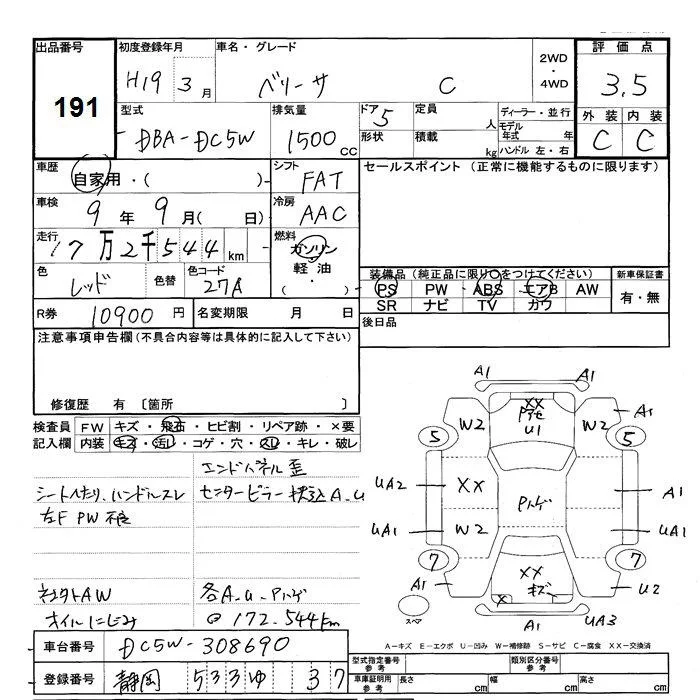 出品番号
191
初度登録年月
H19 3月
車名・グレード
ベリーサ C
2WD・4WD
評価点
3.5
外装 内装
C C
型式
DBA-DC5W
排気量
1500CC
ドア 5
形状
定員 人
積載 kg
ディーラー・並行
モデル年式 年
ハンドル 左・右
車歴
自家用・( )
シフト
FAT
セールスポイント (正常に機能するものに限ります)
車検
9年9月( 日)
冷房
AAC
走行
17万2千544km
燃料
ガソリン・軽油・( )
色
レッド
色替
色コード
27A
装備品 (純正品に限り○をつけてください)
PS PW ABS エアB AW
SR ナビ TV カワ
新車保証書
有・無
R券 10900円
名変期限 月 日
後日品
注意事項申告欄(不具合内容等は具体的に記入して下さい)
修復歴 有 〔箇所 〕
検査員記入欄
FW キズ・飛石・ヒビ割・リペア跡・×要
内装 キズ・汚れ・コゲ・穴・スレ・キレ・破レ
エンドパネル歪
シートへたり、ハンドルスレ
センターピラー A.U
左F PW不良
社外AW
各A.U.Pハゲ
オイルにじみ
172.544km
A1
A1
XX
U1
W2
W2
A1
5
5
UA2
XX
Pハゲ
A1
UA1
W2
UA1
7
7
A1
XX
キズ
X
U2
スペア
A1
UA3
A-キズ E-エクボ U-凹み W-補修跡 S-サビ C-腐食 XX-交換済
車台番号 DC5W-308690
登録番号 静岡 533 ゆ 37
型式指定番号 参考
類別区分番号 参考
車庫証明用 参考
長さ cm
幅 cm
高さ cm